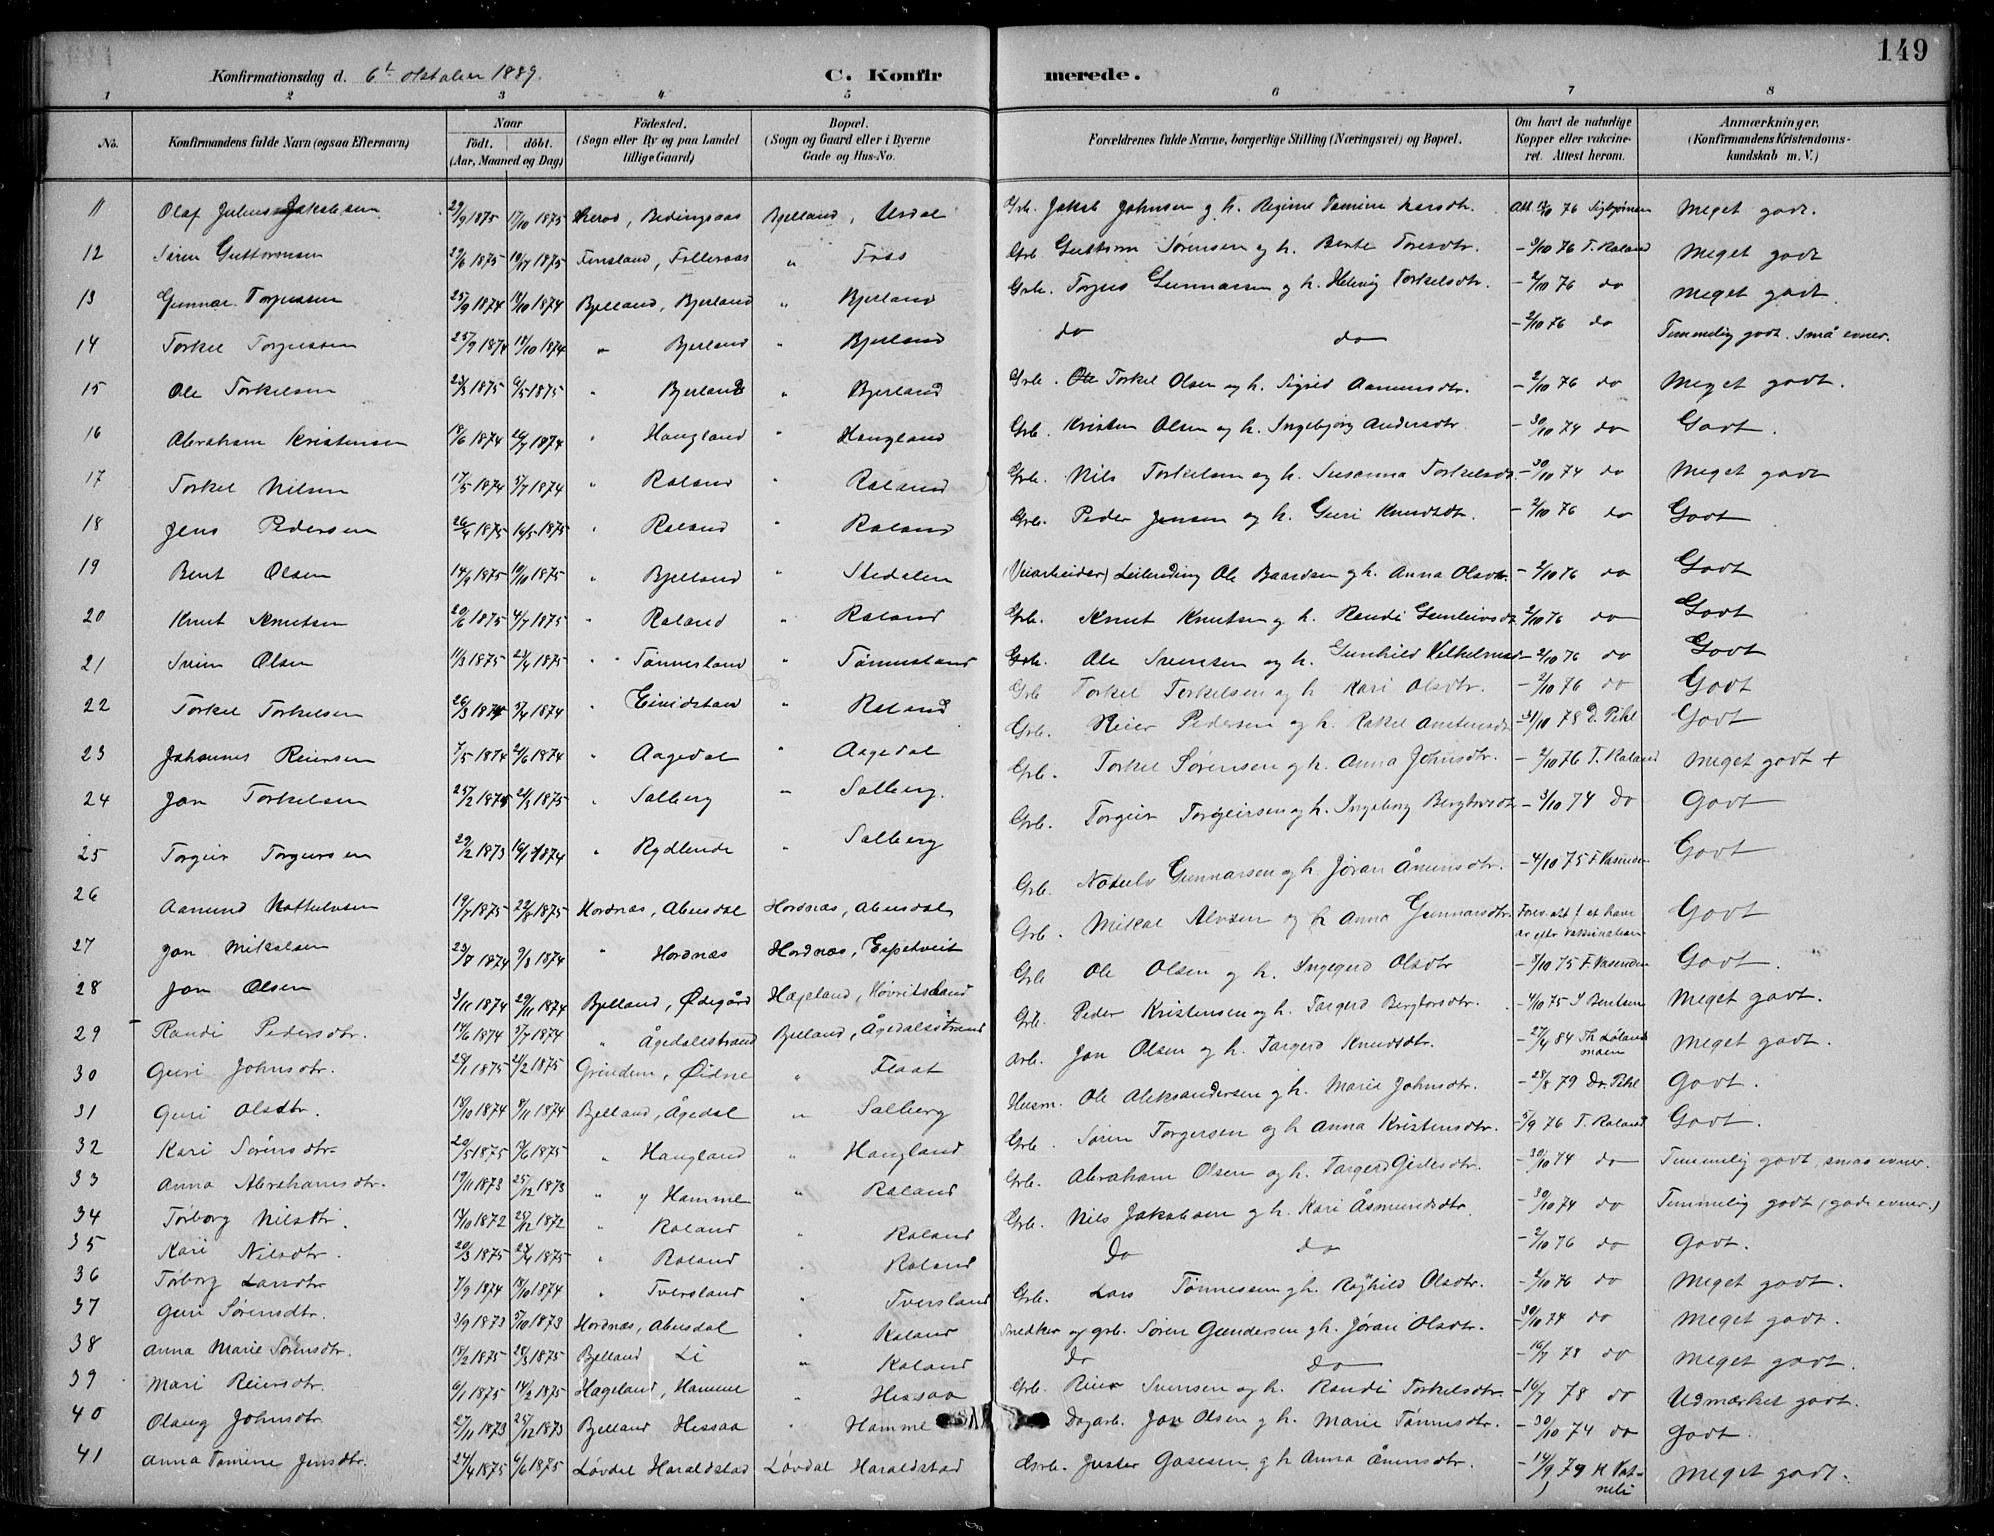 149
Konfirmationsdag d. 6t oktober 1889. C. Konfirmerede.
1 2 3 4 5 6 7 8
No. Konfirmandens fulde Navn (ogsaa Efternavn) Naar Født. døbt. (Aar, Maaned og Dag) Fødested. (Sogn eller By og paa Landet tillige Gaard) Bopæl. (Sogn og Gaard eller i Byerne Gade og Hus-No. Forældrenes fulde Navne, borgerlige Stilling (Næringsvei) og Bopæl. Om havt de naturlige Kopper eller vakcineret. Attest herom. Anmærkninger. (Konfirmandens Kristendomskundskab m. V.)
11 Olaf Julius Jakobsen 29/9 1875 17/10 1875 Bjelland, Usdal Grb. Jakob Johnsen g. h. Regine Tomine Att. 76 Meget godt.
12 Søren Guttormsen 1875 1875 Finsland, " Foss Grb. Guttorm Sørensen og h. Berte Toresdtr. - 3/10 76 T. Røland Meget godt
13 Gunnar Torgussen 25/9 1874 18/10 1874 Bjelland, Bjerland " Bjerland Grb. Torgus Gunnarsen g h. Helvig Torkelsdtr. - 2/10 76 do Meget godt.
14 Torkel Torgussen 25/9 1874 18/10 1874 " Bjerland " Bjerland do do - 2/10 76 do Temmelig godt. Små evner.
15 Ole Torkelsen 23/3 1875 6/5 1875 " Bjerland " Bjerland Grb. Torkel Olsen og h. Sigrid Aamundsdtr. - 2/10 76 do Meget godt.
16 Abraham Kristensen 18/6 1874 26/7 1874 " Haugland " Haugland Grb. Kristen Olsen og h. Ingebjørg Andersdtr. - 30/10 74 do Godt.
17 Torkel Nilsen 17/5 1874 5/7 1874 " Røland " Røland Grb. Nils Torkelsen og h. Susanna Torkelsd. - 30/10 74 do Meget godt
18 Jens Pedersen 26/4 1875 16/5 1875 " Røland " Røland Grb. Peder Jensen og h. Guri Knudsdtr. - 2/10 76 do Godt
19 Bent Olsen 14/9 1875 10/10 1875 " Bjelland " Stedalen (Veiarbeider) Leilending Ole Baardsen g h. Anna Olsdtr. - 2/10 76 do Godt
20 Knut Knutsen 20/6 1875 4/7 1875 " Røland " Røland Grb. Knut Knutsen g h. Randi Gunleivsd. 2/10 76 do Godt
21 Svein Olsen 11/3 1875 24/4 1875 " Tønnesland " Tønnesland Grb. Ole Svensen og h. Gunhild Vilhelmsd. - 2/10 76 do Godt
22 Torkel Torkelsen 26/3 1874 3/4 1874 " Eividstad " Røland Grb Torkel Torkelsen og h Kari Olsdtr. - 2/10 76 do Godt
23 Johannes Reiersen 7/5 1874 21/6 1874 " Aagedal " Aagedal Grb. Reier Pedersen og h. Rakel - 31/10 78 D. Pihl Godt
24 Jon Torkelsen 25/2 1875 21/3 1875 " Solberg " Solberg. Grb. Torkel Sørensen g h. Anna Johnsdtr. - 2/10 76 T. Røland Meget godt +
25 Torgeir Torgeirsen 29/12 1873 1874 " Rydlende " Solberg Grb. Torgeir Torgeirsen og h. Ingeborg Bergtorsdtr - 3/10 74 do Godt
26 Aamund Nottulvsen 19/7 1875 22/8 1875 Hordnæs, Abusdal Hordnæs, Abusdal Grb. Notulv Gunnarsen og h. Jøran Åmundsdtr. - 4/10 75 F. Vasenden Godt
27 Jon Mikalsen 23/8 1874 9/8 1874 " Hordnæs Hordnæs, Espetveit Grb. Mikal Alvsen og h Anna Gunnarsdtr. Forev. att. f. at have ar efter vaksination Godt
28 Jon Olsen 3/11 1874 29/11 1874 Bjelland, Ødegård Hægeland, Grb Ole Olsen og h. Ingegerd Olsdtr - 8/10 75 F. Vasenden Godt.
29 Randi Pedersdtr. 14/6 1874 5/7 1874 " Ågedalsstrand Bjelland, Ågedalsstrand Grb. Peder Kristensen og h. Targerd Bergtorsdtr. - 4/10 75 Bentsen Meget godt.
30 Guri Johnsdtr. 28/1 1875 21/2 1875 Grindem, Øidne " Flaat Arb. Jon Olsen og h. Targerd Knudtdtr. - 27/4 84 Th. Løland moen Meget godt.
31 Guri Olsdtr. 18/10 1874 8/11 1874 Bjelland, Ågedal " Solberg Husm. Ole Aleksandersen g h. Marie Johnsdtr. - 28/8 79 Dr. Pihl Godt.
32 Kari Sørensdtr. 20/5 1875 13/6 1875 " Haugland " Haugland Grb. Søren Torgersen og h Anna Kristensdtr. - 5/9 76 T. Røland Godt.
33 Anna Abrahamsdtr. 19/11 1873 25/12 1873 " y Hamme " Røland Grb. Abraham Olsen og h. Targerd Gislesdtr. - 30/10 74 do Temmelig godt, smaa evner.
34 Torborg Nilsdtr. 14/10 1872 28/12 1872 " Røland " Røland Grb. Nils Jakobsen og h. Kari Åsmundsdtr. - 30/10 74 do Temmelig godt (gode evner.)
35 Kari Nilsdtr. 20/3 1875 24/4 1875 " Røland " Røland Do do - 2/10 76 do Godt.
36 Torborg Larsdtr 7/9 1874 18/10 1874 " Tversland " Tversland Grb. Lars Tønnessen g h. Røghild Olsdtr. - 2/10 76 do Meget godt.
37 Guri Sørensdtr. 3/9 1873 5/10 1873 Hordnæs, Abusdal " Røland Snedker og grb. Søren Gundersen g h. Jøran Olsdtr. - 30/10 74 do Meget godt.
38 Anna Marie Sørensdtr. 18/2 1875 28/3 1875 Bjelland Li " Røland do do - 16/7 78 do Meget godt.
39 Mari Reiersdtr. 6/1 1875 14/2 1875 Hægeland, Hamme " Hessaa Grb. Reier Svensen og h. Randi Torkelsdtr. - 16/7 78 do Udmærket godt.
40 Olaug Johnsdtr 27/11 1873 25/12 1873 Bjelland Hessaa " Hamme Dagarb. Jon Olsen g h. Marie Tønnesdtr. - 30/10 74 do Godt.
41 Anna Tomine Jensdtr. 24/4 1875 6/6 1875 Løvdal Haraldstad Løvdal Haraldstad Gbr. Gasesen g h Anna Åmundsdtr. - 14/9 79 K Vatneli Meget godt.